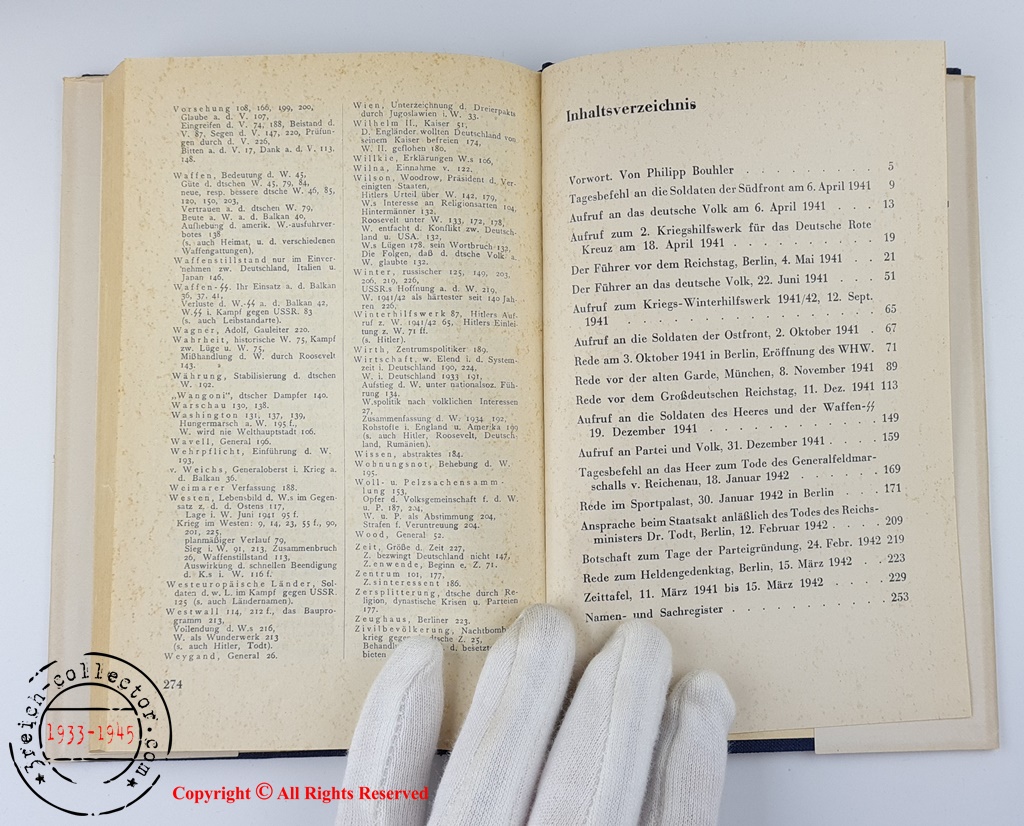 Vorsehung 108, 166, 199, 200,
Glaube a. d. V. 107,
Eingreifen d. V. 74, 188, Beistand d.
V. 87, Segen d. V. 147, 220, Prüfun-
gen durch d. V. 226,
Bitten a. d. V. 17, Dank a. d. V. 113,
148.
Waffen, Bedeutung d. W. 45,
Güte d. dtschen W. 45, 79, 84,
neue, resp. bessere dtsche W. 46, 85,
120, 150, 203,
Vertrauen a. d. dtschen W. 79,
Beute a. W. a. d. Balkan 40,
Aufhebung d. amerik. W.-ausfuhrver-
botes 138
(s. auch Heimat, u. d. verschiedenen
Waffengattungen),
Waffenstillstand nur im Einver-
nehmen zw. Deutschland, Italien u.
Japan 146.
Waffen-SS. Ihr Einsatz a. d. Balkan
36, 37, 41,
Verluste d. W.-SS a. d. Balkan 42,
W.SS i. Kampf gegen USSR. 83
(s. auch Leibstandarte).
Wagner, Adolf, Gauleiter 220.
Wahrheit, historische W. 75, Kampf
zw. Lüge u. W. 75,
Mißhandlung d. W. durch Roosevelt
143.
Währung, Stabilisierung d. dtschen
W. 192.
„Wangoni“, dtscher Dampfer 140.
Warschau 130, 138.
Washington 131, 137, 139,
Hungermarsch a. W. 195 f.,
W. wird nie Welthauptstadt 106.
Wavell, General 196.
Wehrpflicht, Einführung d. W.
193,
v. Weichs, Generaloberst i. Krieg a.
d. Balkan 36.
Weimarer Verfassung 188.
Westen, Lebensbild d. W.s im Gegen-
satz z. d. d. Ostens,
Lage i. W. Juni 1941 95 f.
Krieg im Westen: 9, 14, 23, 55 f., 90,
201, 225,
planmäßiger Verlauf 79,
Sieg i. W. 91, 213, Zusammenbruch
26, Waffenstillstand 113,
Auswirkung d. schnellen Beendigung
d. K.s i. W. 116 f.
Westeuropäische Länder, Sol-
daten d. w. L. im Kampf gegen USSR.
125 (s. auch Ländernamen).
Westwall 114, 212 f., das Baupro-
gramm 213,
Vollendung d. W.s 216,
W. als Wunderwerk 213
(s. auch Hitler, Todt).
Weygand, General 26.
274
Wien, Unterzeichnung d. Dreierpakts
durch Jugoslawien i. W. 33.
Wilhelm II., Kaiser 51,
D. Engländer wollten Deutschland von
seinem Kaiser befreien 174,
W. II. geflohen 180.
Willkie, Erklärungen W.s 106,
Wilna, Einnahme v. 122.
Wilson, Woodrow, Präsident d. Ver-
einigten Staaten,
Hitlers Urteil über W. 142, 179,
W.s Interesse an Religionsarten 104,
Hintermänner 132,
Roosevelt unter W. 133, 172, 178,
W. entfacht d. Konflikt zw. Deutsch-
land u. USA. 132,
W.s Lügen 178. sein Wortbruch 132,
Die Folgen, daß d. dtsche Volk a.
W. glaubte 132.
Winter, russischer 125, 149, 203,
206, 219, 226,
USSR.s Hoffnung a. d. W. 219,
W. 1941/42 als härtester seit 140 Jah-
ren 226.
Winterhilfswerk 87, Hitlers Auf-
ruf z. W. 1941/42 65, Hitlers Einlei-
tung z. W. 71 ff.
(s. Hitler).
Wirth, Zentrumspolitiker 189.
Wirtschaft, w. Elend i. d. System-
zeit i. Deutschland 190, 224,
W. i. Deutschland 1933 191,
Aufstieg d. W. unter nationalsoz. Füh-
rung 134,
W.spolitik nach volklichen Interessen
27,
Zusammenfassung d. W. 1934 192,
Rohstoffe i. England u. Amerika 199
(s. auch Hitler, Roosevelt, Deutsch-
land, Rumänien).
Wissen, abstraktes 184.
Wohnungsnot, Behebung d. W.
195.
Woll- u. Pelzsachensamm-
lung 153,
Opfer d. Volksgemeinschaft f. d. W.
u. P. 187, 204,
W. u. P. als Abstimmung 204,
Strafen f. Veruntreuung 204.
Wood, General 52.
Zeit, Größe d. Zeit 227,
Z. bezwingt Deutschland nicht 147,
Z.enwende, Beginn e. Z. 71.
Zentrum 101, 177,
Z.sinteressent 186.
Zersplitterung, dtsche durch Re-
ligion, dynastische Krisen u. Parteien
177.
Zeughaus, Berliner 223.
Zivilbevölkerung, Nachtbomb
krieg gegen dtsche Z. 25,
Behandl d. besetzt
bieten
Inhaltsverzeichnis
Vorwort. Von Philipp Bouhler . . . . . . . . . 5
Tagesbefehl an die Soldaten der Südfront am 6. April 1941 9
Aufruf an das deutsche Volk am 6. April 1941 . . . 13
Aufruf zum 2. Kriegshilfswerk für das Deutsche Rote
Kreuz am 18. April 1941 . . . . . . . . . 19
Der Führer vor dem Reichstag, Berlin, 4. Mai 1941 . . 21
Der Führer an das deutsche Volk, 22. Juni 1941 . . . 51
Aufruf zum Kriegs-Winterhilfswerk 1941/42, 12. Sept.
1941 . . . . . . . . . . . . . . . 65
Aufruf an die Soldaten der Ostfront, 2. Oktober 1941 . 67
Rede am 3. Oktober 1941 in Berlin, Eröffnung des WHW. 71
Rede vor der alten Garde, München, 8. November 1941 89
Rede vor dem Großdeutschen Reichstag, 11. Dez. 1941 113
Aufruf an die Soldaten des Heeres und der Waffen-SS
19. Dezember 1941 . . . . . . . . . . . 149
Aufruf an Partei und Volk, 31. Dezember 1941 . . . . 159
Tagesbefehl an das Heer zum Tode des Generalfeldmar-
schalls v. Reichenau, 18. Januar 1942 . . . . . 169
Rede im Sportpalast, 30. Januar 1942 in Berlin . . . 171
Ansprache beim Staatsakt anläßlich des Todes des Reichs-
ministers Dr. Todt, Berlin, 12. Februar 1942 . . . . 209
Botschaft zum Tage der Parteigründung, 24. Febr. 1942 219
Rede zum Heldengedenktag, Berlin, 15. März 1942 . . 223
Zeittafel, 11. März 1941 bis 15. März 1942 . . . . . 229
Namen- und Sachregister . . . . . . . . . . 253
3reich-collector.com
1933-1945
Copyright © All Rights Reserved